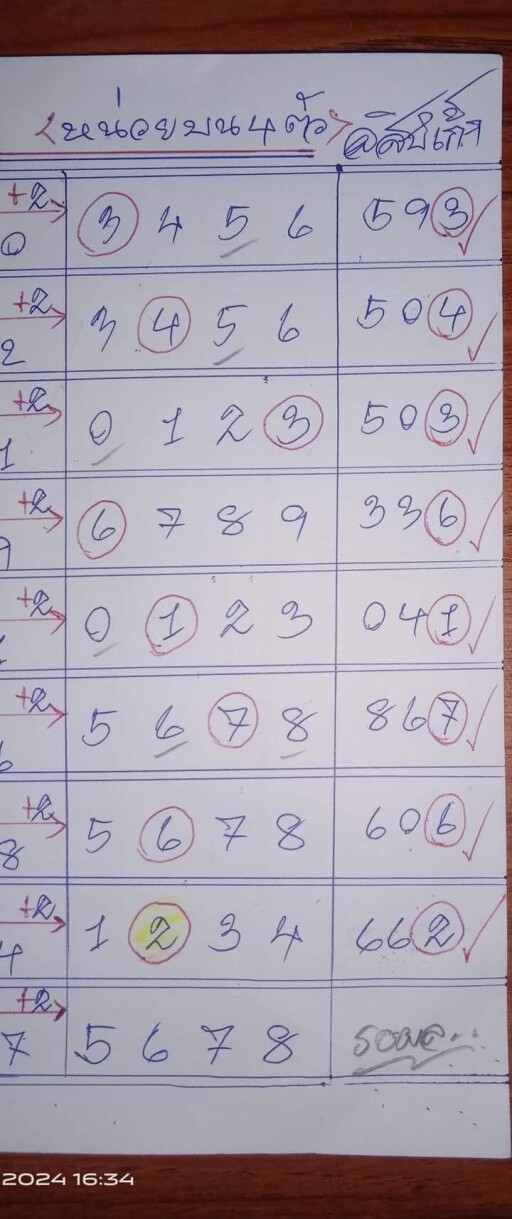 หน่วยบน 4 ตัว
+2 3 4 5 6 593
0
+2 3 4 5 6 504
2
+2 0 1 2 3 503
1
+2 6 7 8 9 336
9
+2 0 1 2 3 041
+2 5 6 7 8 867
6
+2 5 6 7 8 606
8
+2 1 2 3 4 662
4
+2 5 6 7 8 รอผล..
7
2024 16:34